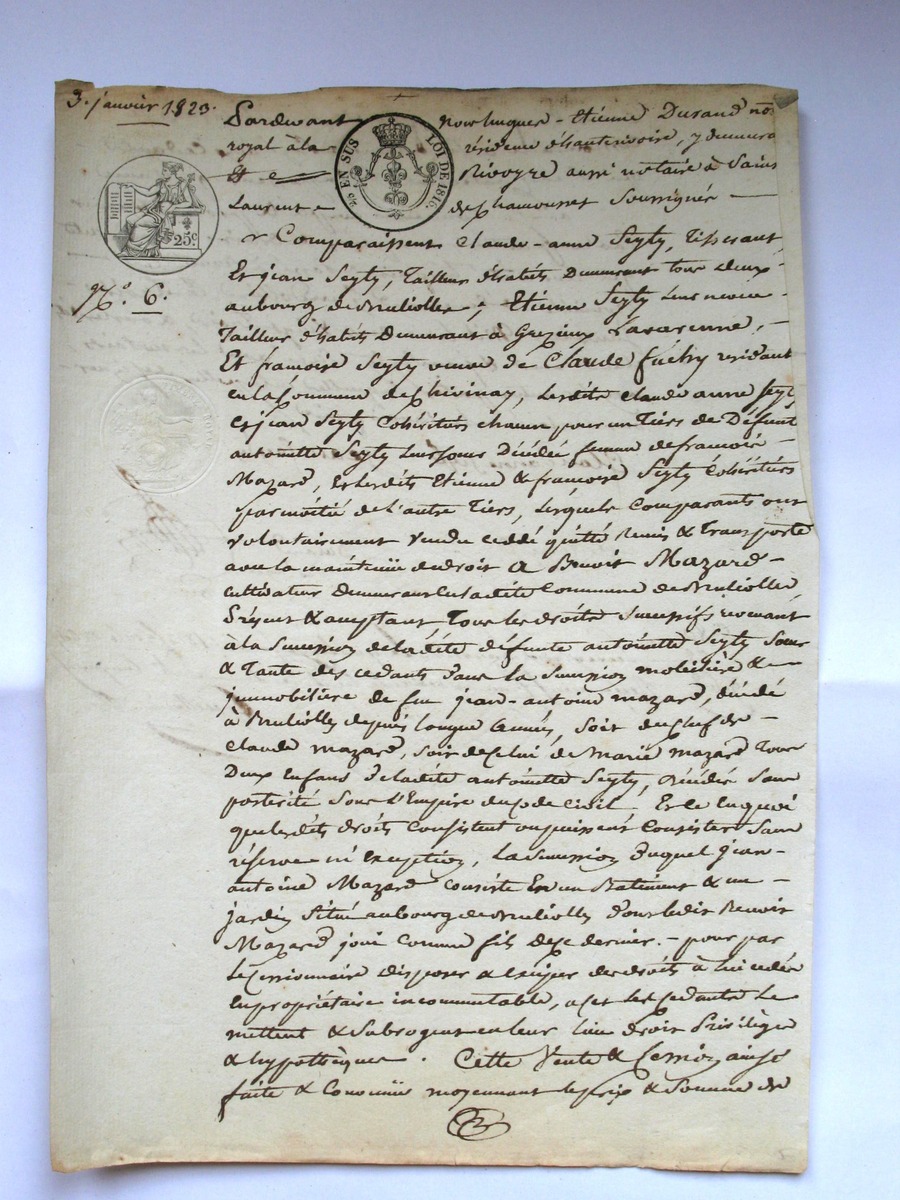 3. janvier 1823.
Pardevant nous hugues-Etienne Durand no
royal à la résidence d'hauterivoire, y demeura
Et e Rivoyre aussi notaire à Saint
Laurent de Chamousset Soussignés
EN SUS LOI DE 1816.
25c
N.° 6.
Comparaissent Claude-anne Seyty, Tisserant
Et jean Seyty, Tailleur d'habits Demeurant tous deux
au bourg de Bruliolles, Etienne Seyty Leur neveu
Tailleur d'habits Demeurant à Grezieux Lavarenne,
Et françoise Seyty veuve de Claude fuchy residant
en la Commune de Chivinay, Lesdits Claude anne Seyt
Et jean Seyty Cohéritiers chacun pour un Tiers de Défunte
antoinette Seyty Leur sœur Décédée femme de françois
Mazard, Et Lesdits Etienne & françoise Seyty Cohéritiers
par moitié de l'autre Tiers, Lesquels Comparants ont
volontairement vendu cedé quitté Remis & Transporté
avec la maintenüe de droit a Benoit Mazard
cultivateur Demeurant en Ladite Commune de Bruliolles
Présent & acceptant Tous les droits Successifs revenant
à la Succession de ladite défunte antoinette Seyty Sœur
& Tante des cedants dans la Succession mobiliere &
immobiliere de feu jean-antoine mazard, décédé
à Brulliolles depuis longue années, soit du chef de
Claude mazard, soit de Celui de Marie mazard Tous
Deux Enfans de ladite antoinette Seyty, décédés Sans
posterité Sous l'Empire du Code civil. Et ce En quoi
que lesdits droits Consistent ou puissent Consister Sans
réserve ni Exception, La Succession Duquel jean-
antoine Mazard consiste En un Batiment & un
jardin Situé au bourg de Brulliolles dont ledit Benoit
Mazard joui comme fils de ce dernier. - pour par
Le Cessionnaire disposer & des droits à lui cedés
En propriétaire incommutable, a cet les Cedants Le
mettent & Subrogent en leur Lieu droit Privilège
& hypothèques. Cette Vente & Cession ainsi
faite & Convenüe moyennant le prix & Somme de